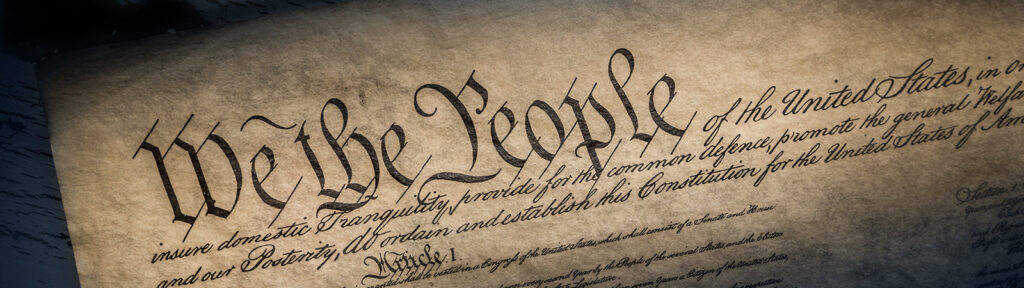 We the People of the United States, in
insure domestic Tranquility, provide for the common defence, promote the general Welfa
and our Posterity, do ordain and establish this Constitution for the United States of Am
Article. I
vested in a Congress of the United States, which shall consist of a Senate and House
every second Year by the People of the several States, and the
Years a Citizen of the United States,
Section